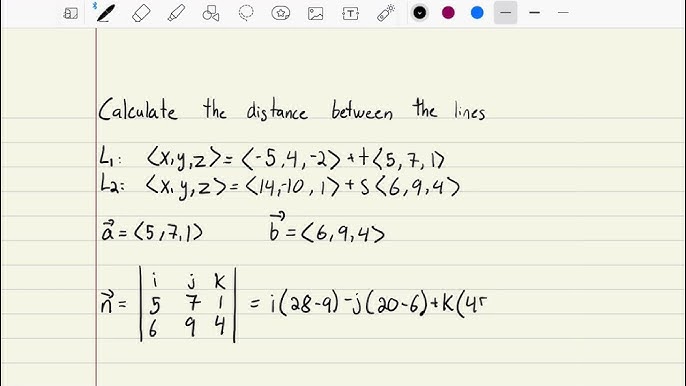 Calculate the distance between the lines
L₁: ⟨x,y,z⟩=⟨-5,4,-2⟩+t⟨5,7,1⟩
L₂: ⟨x,y,z⟩=⟨14,-10,1⟩+s⟨6,9,4⟩
a⃗=⟨5,7,1⟩ b⃗=⟨6,9,4⟩
i j k
n⃗ = 5 7 1 = i(28-9)-j(20-6)+k(45
6 9 4